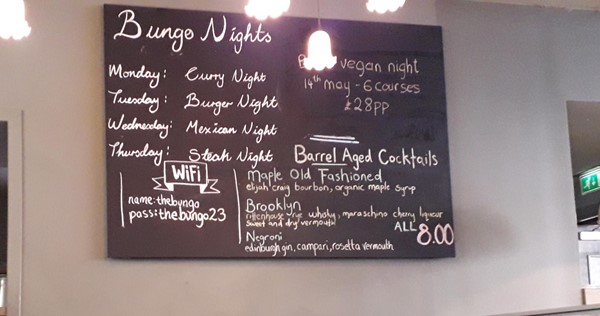 Bungo Nights
Monday: Curry Night
Tuesday: Burger Night
Wednesday: Mexican Night
Thursday: Steak Night
vegan night
14th may - 6 courses
£28pp
WiFi
name: thebungo
pass: thebungo23
Barrel Aged Cocktails
Maple Old Fashioned
elijah craig bourbon, organic maple syrup
Brooklyn
rittenhouse rye whisky, maraschino cherry liqueur
sweet and dry vermouth
Negroni
edinburgh gin, campari, rosetta vermouth
ALL 8.00